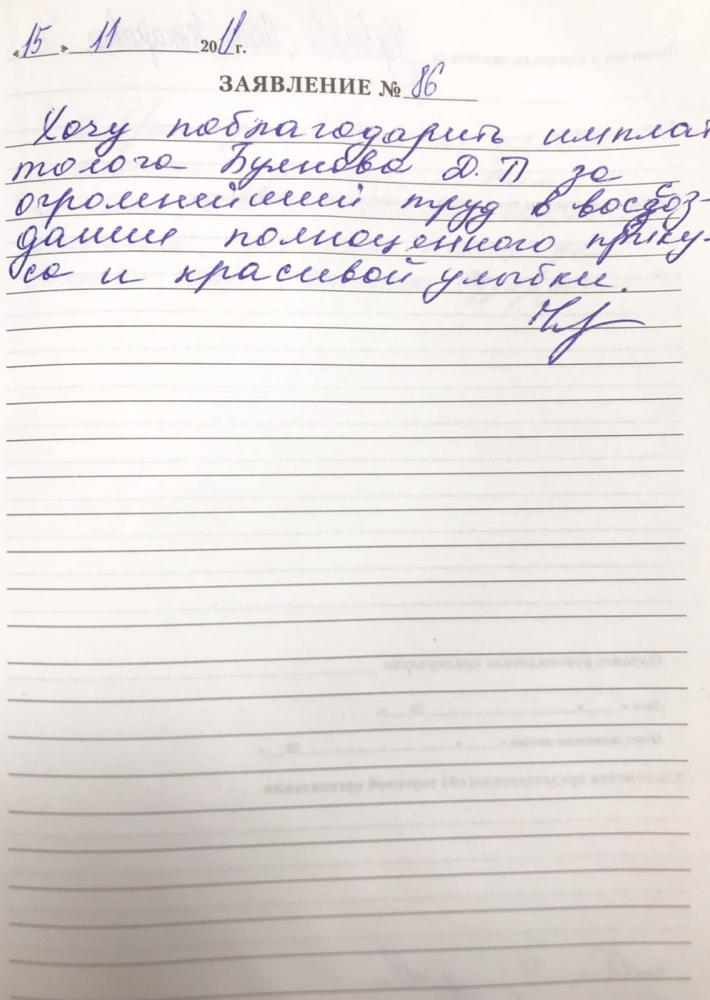 «15» 11 2011 г.
ЗАЯВЛЕНИЕ № 86
Хочу поблагодарить имплан
толога Д.П за
огромнейший труд в воссоз-
дание полноценного прику-
са и красивой улыбки.